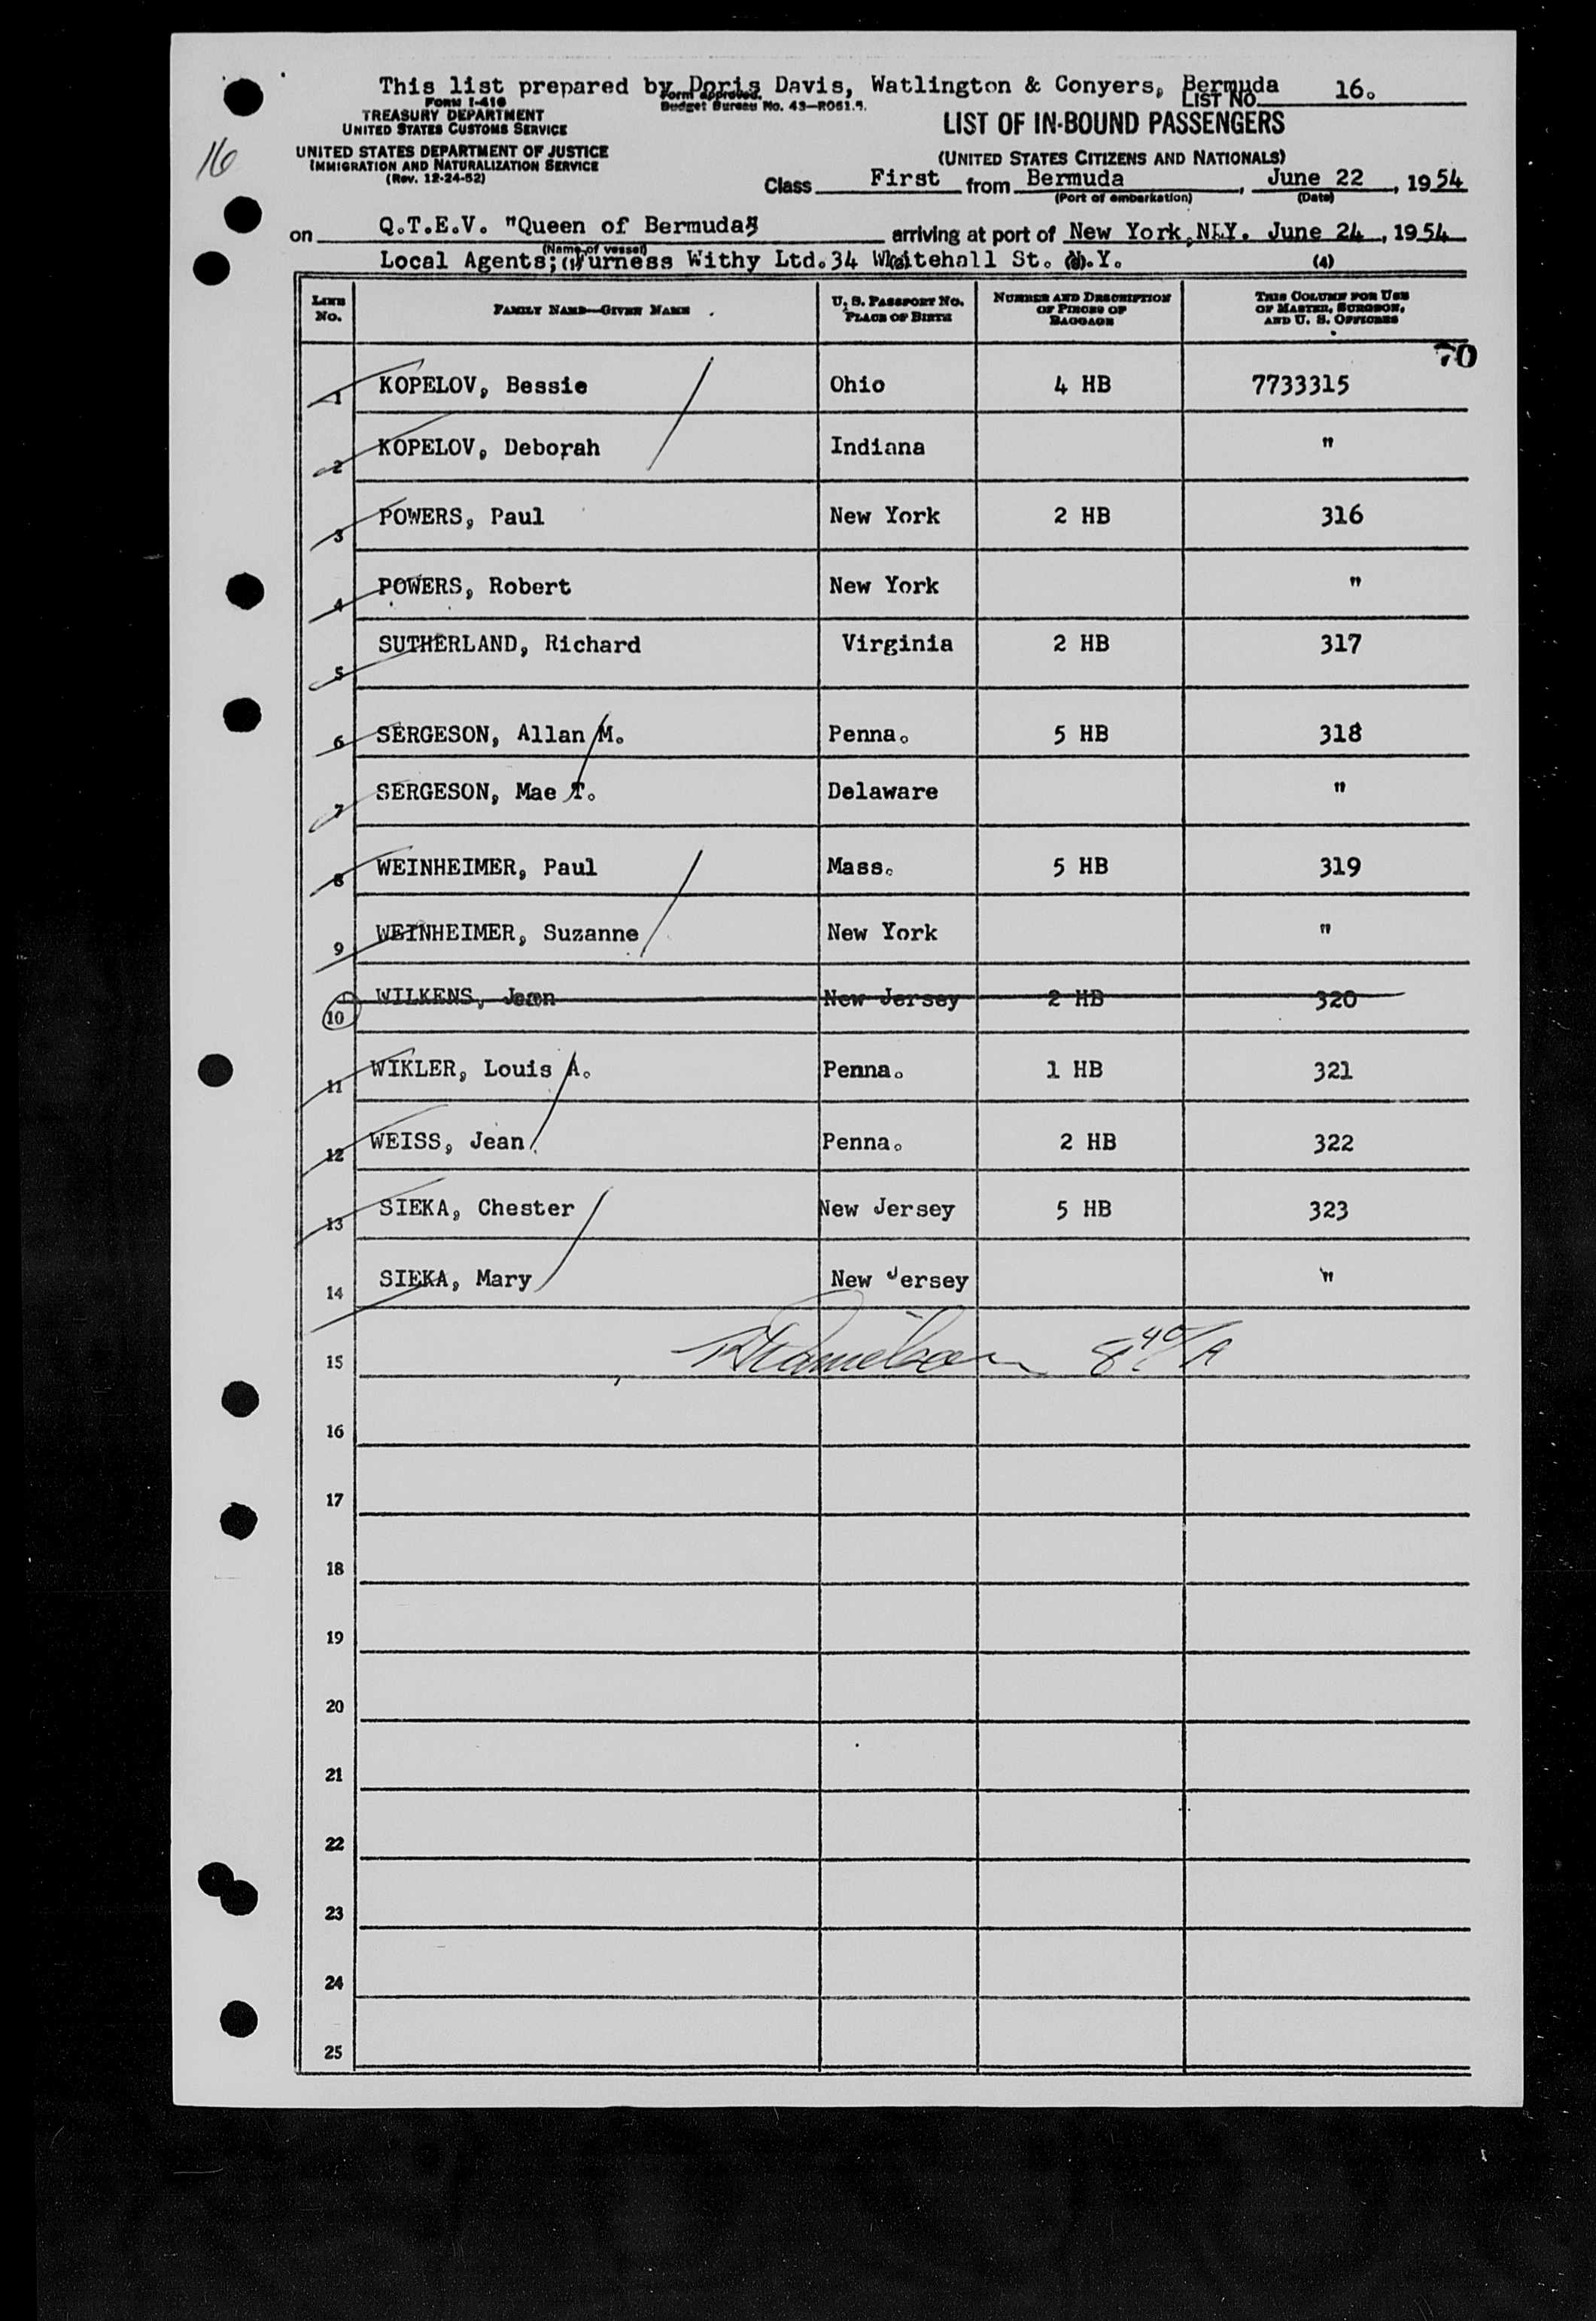 This list prepared by Doris Davis, Watlington & Conyers, Bermuda
FORM I-418
TREASURY DEPARTMENT
UNITED STATES CUSTOMS SERVICE
UNITED STATES DEPARTMENT OF JUSTICE
IMMIGRATION AND NATURALIZATION SERVICE
(Rev. 12-24-52)
Form approved.
Budget Bureau No. 43—R061.
LIST NO. 16.
16
LIST OF IN-BOUND PASSENGERS
(UNITED STATES CITIZENS AND NATIONALS)
Class First from Bermuda, June 22, 1954
(Port of embarkation) (Date)
on Q.T.E.V. "Queen of Bermuda" arriving at port of New York, N.Y. June 24, 1954
(Name of vessel)
Local Agents; Furness Withy Ltd. 34 Whitehall St. N.Y.
(1) (2) (3) (4)
LINE NO. FAMILY NAME—GIVEN NAME U. S. PASSPORT NO. PLACE OF BIRTH NUMBER AND DESCRIPTION OF PIECES OF BAGGAGE THIS COLUMN FOR USE OF MASTER, SURGEON, AND U. S. OFFICERS
70
1 KOPELOV, Bessie Ohio 4 HB 7733315
2 KOPELOV, Deborah Indiana "
3 POWERS, Paul New York 2 HB 316
4 POWERS, Robert New York "
5 SUTHERLAND, Richard Virginia 2 HB 317
6 SERGESON, Allan M. Penna. 5 HB 318
7 SERGESON, Mae T. Delaware "
8 WEINHEIMER, Paul Mass. 5 HB 319
9 WEINHEIMER, Suzanne New York "
10 WILKENS, Jean New Jersey 2 HB 320
11 WIKLER, Louis A. Penna. 1 HB 321
12 WEISS, Jean Penna. 2 HB 322
13 SIEKA, Chester New Jersey 5 HB 323
14 SIEKA, Mary New Jersey "
15 8 40/A
16
17
18
19
20
21
22
23
24
25